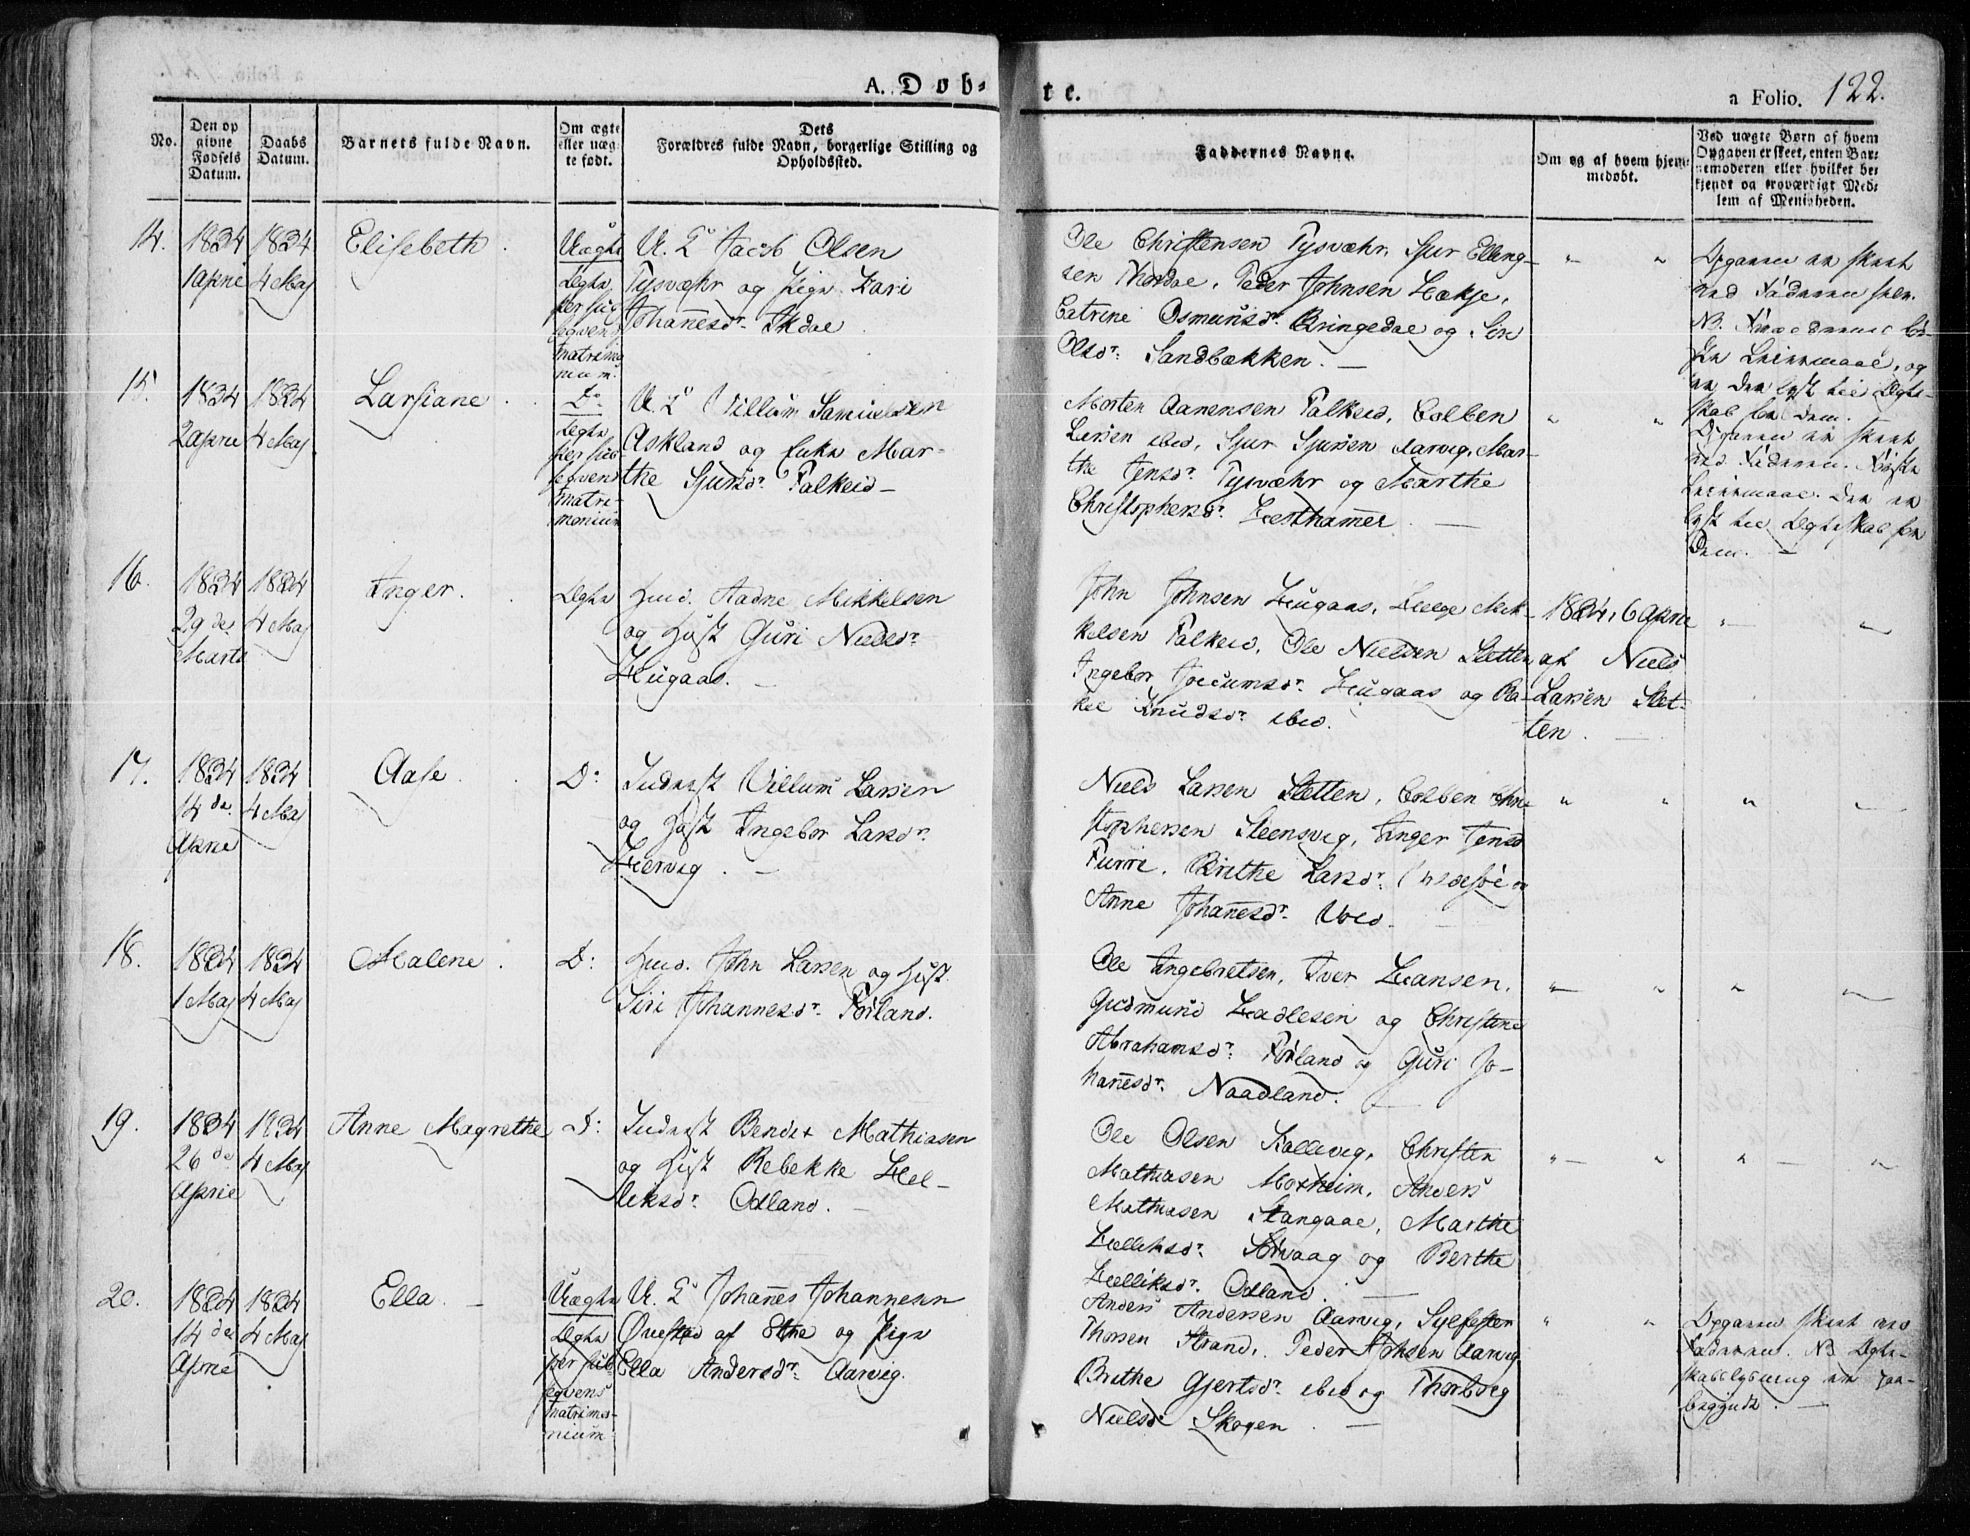 A. Døb-
te.
a Folio. 122.
No.
Den op
givne
Fødsels
Datum.
Daabs
Datum.
Barnets fulde Navn.
Om ægte
eller uæg-
te født.
Dets
Forældres fulde Navn, borgerlige Stilling og
Opholdssted.
Faddernes Navne.
Om og af hvem hjem-
medøbt.
Ved uægte Børn af hvem
Opgaven er skeet, enten Bar-
nemoderen eller hvilket be-
kjendt og troværdigt Med-
lem af Menigheden.
14.
1834
1 April
1834
4 Maj
Elisebeth
Uægte
Ægte
per sub
seqvens
matrimo
nium.
U. K. Jacob Olsen
Tysvæhr og Pige Kari
Johañesdr.
Ole Christensen Tysvæhr, Sjur Elling-
sen Peder Johnsen
Catrine Osmunsdr. Bringedal og Siri
Olsdr. Sandbækken. —
" "
Opgaven er skeet
ved Faderen selv.
NB.
Leiermaal, og
er der lyst til Ægte-
skab for dem.
15.
1834
2 April
1834
4 Maj
Larsiane
Do
Ægte
per sub
seqvens
matri-
monium
U. K. Villum Samuelsen
Askland og Enke Mar-
the Sjursdr. Falkeid —
Morten Aanensen Falkeid, Colben
Larsen ibid, Sjur Sjursen Aarvig, Mar-
the Jensdr. Tysvæhr og Marthe
Christophersdr. Hesthamer —
" "
Opgaven er skeet
ved Faderen. Første
Leiermaal. Der er
lyst til Ægteskab for
Dem. —
16.
1834
29 de
Marts
1834
4 Maj
Inger.
Ægte
Huusm. Aadne Mikkelsen
og Hust Guri Nielsdr.
Haugaas. —
John Johnsen Haugaas, Helge Mik-
kelsen Falkeid, Ole Nielsen Sletten
Ingebor Jocumsdr. Haugaas og Ra-
kel Knudsdr. ibid.
1834, 6 April
af Niels
Larsen Slet-
ten. —
" "
17.
1834
14 de
April
1834
4 Maj
Aase
Do
Inderst Villum Larsen
og Hust Ingebor Larsdr.
Hervig. —
Niels Larsen Sletten, Colben Chri-
stophersen Steensvig, Inger Jensd
Furre, Brithe Larsdr.
Anne Johañesdr. ibid. —
" " " "
18.
1834
1 Maj
1834
4 Maj
Malene
Do
Huusm. John Larsen og Hust.
Siri Johannesdr. Førland.
Ole Ingebretsen, Iver Hansen,
Gudmund Hadlesen og Christine
Abrahamsdr. Førland og Guri Jo-
hañesdr. Naadland. —
" " " "
19.
1834
26 de
April
1834
4 Maj
Anne Magrethe
Do
Inderst Bendix Mathiasen
og Hust Rebekke Hel-
liksdr. Odland. —
Ole Olsen Kallevig, Christen
Mathiasen Moxheim, Anders
Mathiasen Stangaae, Marthe
Helliksdr. Aavaag og Berthe
Helliksdr. Odland. —
" " " "
20.
1834
14 de
April
1834
4 Maj
Ella. —
Uægte
Ægte
per sub
seqvens
matrimo-
nium.
U. K. Johañes Johannesen
Øvestad af Etne og Pige
Ella Andersdr. Aarvig.
Anders Andersen Aarvig, Sylfester
Thorsen Strand, Peder Johsen Aarvig
Brithe Gjertsdr. ibid og Thorbor
Nielsdr Skogen —
" "
Opgaven skeet ved
Faderen. NB Ægte-
skabslysning er paa-
begyndt. —